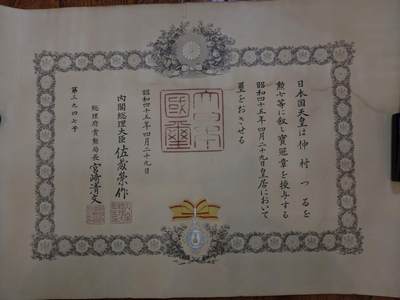 日本国天皇は仲村つるを
勲七等に叙し寶冠章を授与する
昭和四十五年四月二十九日皇居において
璽をおさせる
大日本
國璽
昭和四十五年四月二十九日
内閣総理大臣佐藤榮作
総理府賞勲局長宮崎清文
第三九四七号